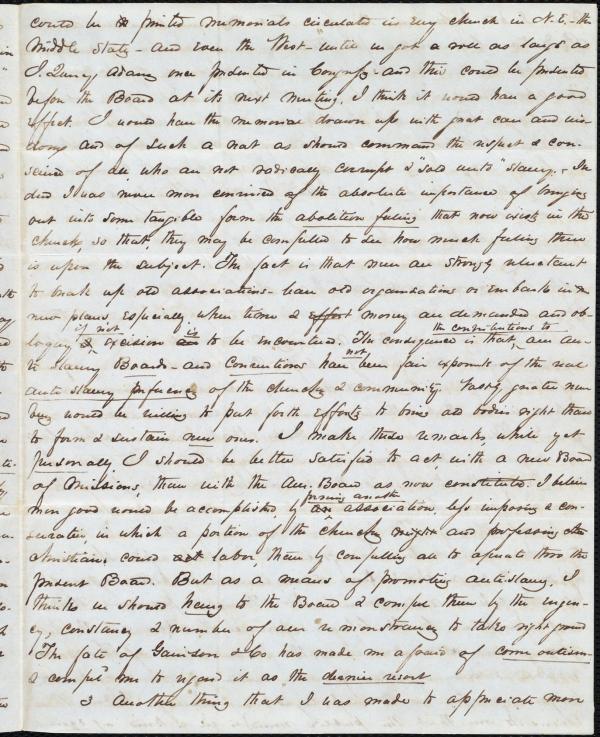 could be printed memorials circulated in every church in N.E. - the
Middle States - and even the West - until we got a roll as large as
J. Quincy Adams once presented in Congress - and this could be presented
before the Board at its next meeting. I think it would have a good
effect. I would have the memorial drawn up with great care and wis-
dom and of such a nat as should command the respect & con-
science of all who are not radically corrupt & "sold unto" slavery. In-
deed I was never more convinced of the absolute importance of bringing
out into some tangible form the abolition feeling that now exists in the
church, so that they may be compelled to see how much feeling there
is upon the subject. The fact is that men are strongly reluctant
to break up old associations - leave old organizations or embark in
new plans especially when time & effort money are demanded and ob-
loquy if not excision is to be encountered. The consequence is that the contributions to our an-
ti slavery Boards - and Conventions have not been fair exponents of the real
anti slavery preference of the church & community. Vastly greater num
bers would be willing to put forth efforts to bring old bodies right than
to form & sustain new ones. I make these remarks, while yet
personally I should be better satisfied to act with a new Board
of Missions, than with the Am. Board as now constituted. I believe
more good would be accomplished by forming another association less imposing &
in which a portion of the church and professing
Christians could act labor, than by compelling all to operate thro the
present Board. But as a means of promoting antislavery, I
think we should hang to the Board & compel them by the urgen-
cy, constancy & number of our remonstrances to take right ground
The fate of Garrison & Co has made me afraid of come outism
& compel me to regard it as the dernier resort
3 Another thing that I was made to appreciate more